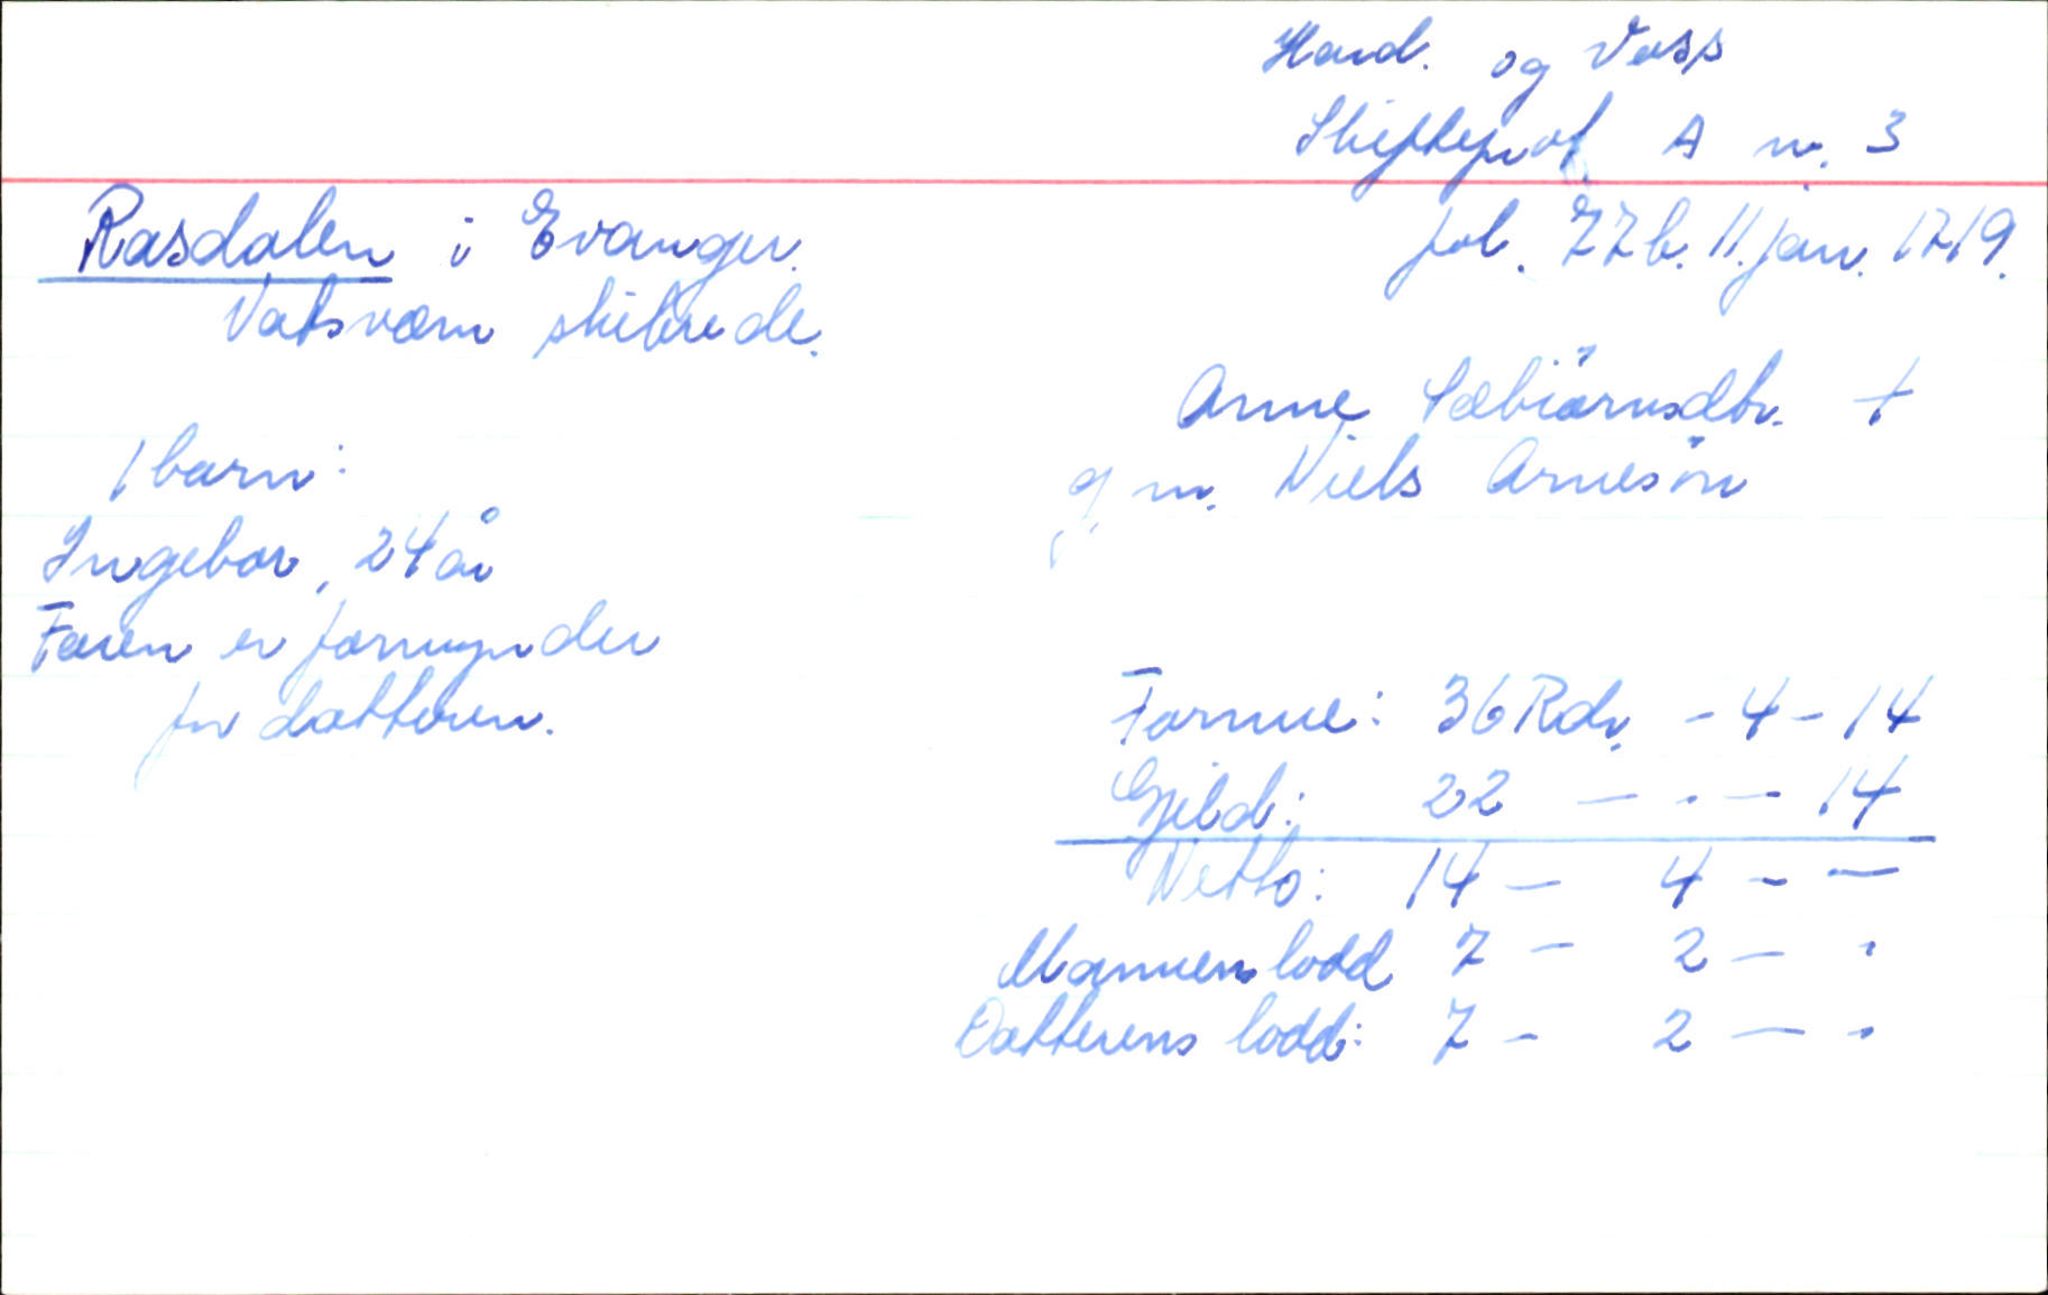 Hard. og Voss
Skifteprot A nr. 3
Rasdalen i Evanger.
fol. 77b. 11. jan. 1719.
Vatsværn skibrede.
Anne Sæbiörnsdtr. +
g. m. Niels Arnesön
1 barn:
Ingebor, 24 år
Faren er formynder
for datteren.
Formue: 36 Rdr. - 4 - 14
Gjeld: 22 - . - 14
Netto: 14 - 4 - -
Mannens lodd 7 - 2 - .
Datterens lodd: 7 - 2 - .